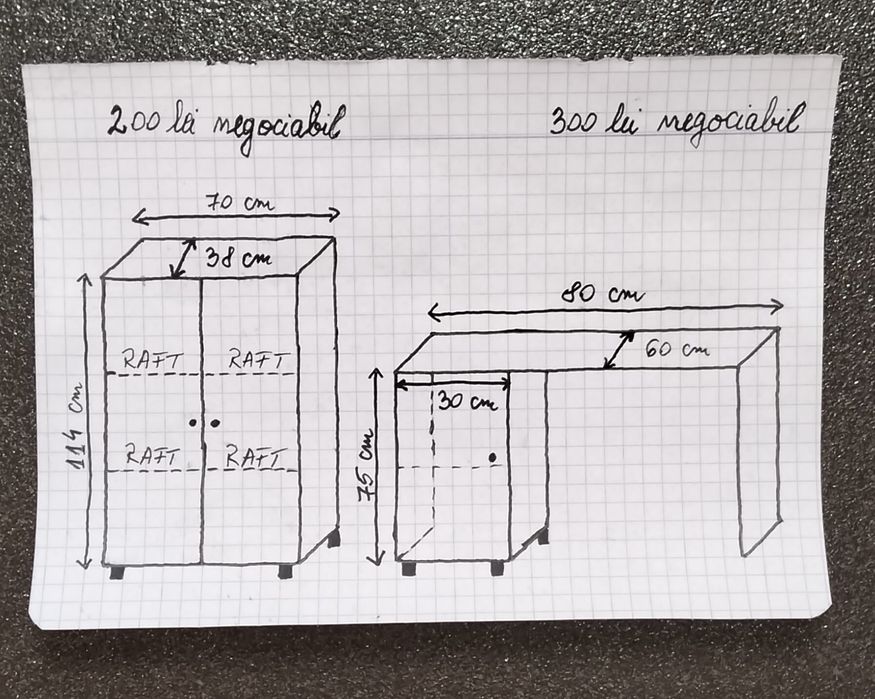 200 lei negociabil
300 lei negociabil
70 cm
38 cm
114 cm
RAFT RAFT
RAFT RAFT
80 cm
60 cm
30 cm
75 cm